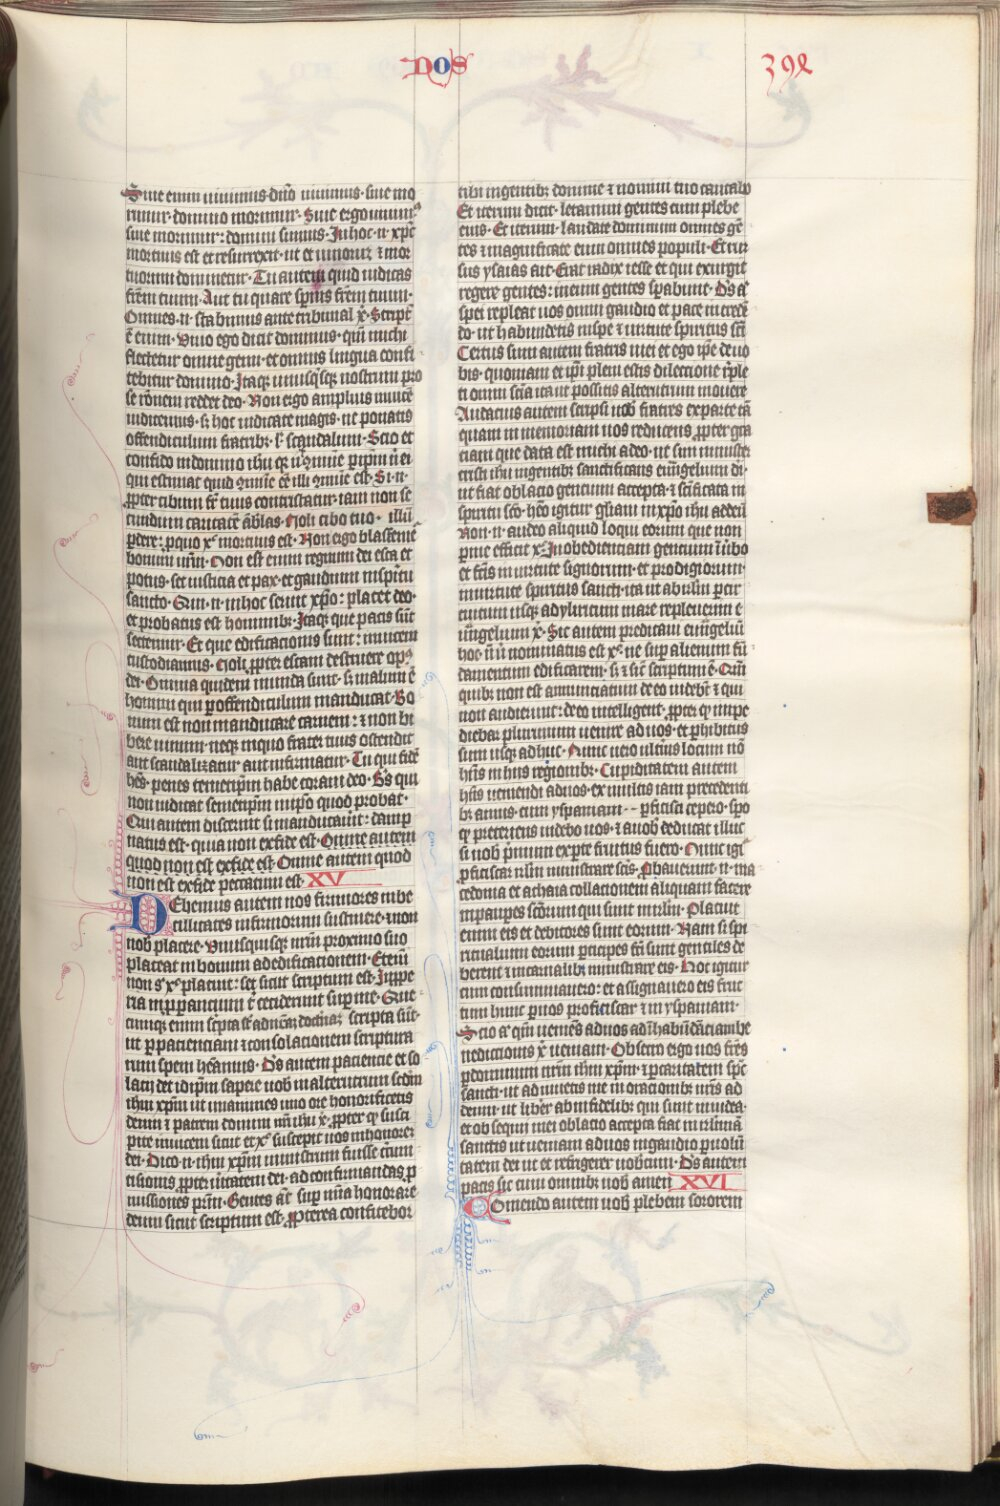 DOS
392
Siue enim uiuimus· dño uiuimus· siue mo
rimur· domino morimur· Siue ergo uiuimꝰ
siue morimur: domini sumus· In hoc· n̄· xp̄c
mortuus est et resurrexit· ut et uiuoruꝫ ⁊ mor
tuorum dominetur· Tu autem quid iudicas
frēm tuum· Aut tu quare spnis frēm tuum·
Omnes· n̄· stabimus ante tribunal x̄· Script̄
ē enim· Viuo ego dicit dominus· qm̄ michi
flectetur omne genu· et omnis lingua confi
tebitur domino· Itaqꝫ unusqꝫqꝫ nostrum pro
se rōnem reddet deo· Non ergo amplius inuicē
iudicemus· sꝫ hoc iudicate magis· ne ponatis
offendiculum fratribꝫ· ł scandalum· Scio et
confido in domino ihu qꝫ
qui estimat quid
ꝓpter cibum fr̄ tuus contristatur· iam non se
cundum caritatē āblas· Noli cibo tuo· illū
pdere: p quo xꝰ mortuus est· Non ergo blasfemē
bonum nrm̄· Non est enim regnum dei esca et
potus· set iusticia et pax· et gaudium in spiritu
sancto· Qui· n̄· in hoc seruit xp̄o: placet deo·
et probatus est hominibꝫ· Itaqꝫ que pacis sūt
sectemur· Et que edificacionis sunt: inuicem
custodiamus· Noli ꝓpter escam destruere opꝰ
dei· Omnia quidem munda sunt· sꝫ malum ē
homini qui p offendiculum manducat· Bo
num est non manducare carnem: ⁊ non bi
bere uinum· neqꝫ in quo frater tuus offendit
aut scandalizatur aut infirmatur· Tu qui fidē
hēs· penes temetip̄m habe coram deo· Bs̄ qui
non iudicat semetip̄m in ip̄o quod probat·
Qui autem discernit si manducauit: damp
natus est· quia non ex fide est· Omne autem
quod non est ex fide est Omne autem quod
non est ex fide peccatum est· XV
DEbemus autem nos firmiores inbe
cillitates infirmorum sustinere· ⁊ non
nob̄ placere· Vnusquisqꝫ nrm̄ proximo suo
placeat in bonum ad edificacionem· Etenim
non s̄ xꝰ placuit: set sicut scriptum est· Inppe
ria inpperancium t̄ ceciderunt sup me· Que
cumqꝫ enim scpta sr̄ ad nrāꝫ doctnāꝫ scripta sūt·
ut p pacienciam ⁊ consolacionem scriptura
rum spem hēamus· Ds̄ autem paciencie et so
lacii det idip̄m sapere nob̄ in alterutrum scdm̄
ihm xp̄m ut unanimes uno ore honorificetis
deum ⁊ patrem domini nr̄i ihu x̄· ꝓpter qꝫ susci
pite inuicem sicut et xꝰ suscepit nos in honorē
dei· Dico· n̄· ihm xp̄m ministrum fuisse circum
cisionis ꝓpter ueritatem dei· ad confirmandas p
missiones prm̄· Gentes aūt sup mīa honorare
deum sicut scriptum est· ꝓpterea confitebor
tibi in gentibꝫ domine ⁊ nomini tuo cantabo
Et iterum dicit· letamini gentes cum plebe
eius· Et iterum· laudate dominum omnes gē
tes ⁊ magnificate eum omnes populi· Et rur
sus ysaias ait· Erit radix iesse et qui exurget
regere gentes: in eum gentes sp̄abunt· Ds̄ aū
spei repleat uos omni gaudio et pace in crede
do· ut habundetis in spe ⁊ uirtute spiritus sc̄i
Certus sum autem fratres mei et ego ip̄e de uo
bis· quoniam et ip̄i pleni estis dilectione rple
ti omni sc̄ia ita ut possitis alterutrum monere
Audacius autem scripsi nob̄ fratres ex parte tā
quam in memoriam uos reducens ꝓpter gra
ciam que data est michi a deo· ut sim minister
cristi ihu in gentibꝫ sanctificans euāngelium di·
ut fiat oblacio gentium accepta ⁊ sc̄ificata in
spiritu sc̄o· hēo igitur gl̄iam in xp̄o ihu ad deū
Non· n̄· audeo aliquid loqui eorum que non
p me efficit xꝰ In obedienciam gentium ī ūbo
et fc̄is in uirtute signorum· et prodigiorum·
in uirtute spiritus sancti· ita ut ab ilm̄ per cir
cuitum usqꝫ ad yliricum mare repleuerim e
uāngelium x̄· Sic autem predicaui euāngeliū
hoc· n̄ ū nominatus est xꝰ· ne sup alienum fū
damentum edificarem· sꝫ ⁊ sic̄ scriptum ē· Qm̄
quibꝫ non est annunciatum de eo uidebt̄ ⁊ qui
non audierunt: de eo intelligent· ꝓpter qꝫ inpe
diebar plurimum uenire ad uos· et phibitus
sum usqꝫ adhuc· Nunc uero ulterius locum nō
hn̄s in hiis regionibꝫ· Cupiditatem autem
hn̄s ueniendi ad uos· ex multis iam precedenti
bꝫ annis· cum yspaniam -- pficisci cepero· spo
qꝫ preteriens uidebo uos· ⁊ a uob̄ deducar illuc
si uob̄ primum ex pte fruitus fuero· Nunc igi
pficiscar ilm̄ ministrare sc̄is· Pbauerunt· n̄· ma
cedonia et achaia collacionem aliquam facere
in paupes sc̄orum qui sunt in irlm̄· Placuit
enim eis et debitores sunt eorum· Nam si spi
ritualium eorum pticipes fc̄i sunt gentiles de
berent ⁊ in carnalibꝫ ministrare eis· Hoc igitur
cum consummauero: et assignauero eis fruc
tum hunc p uos proficiscar ⁊ in yspaniam·
Scio aū qm̄ ueniēs ad uos ad ī habūdācia be
nedictionis x̄ ueniam· Obsecro ergo uos frēs
p dominum nrm̄ ihm xp̄m· ⁊ p caritatem spc̄
sancti· ut adiuuetis me in oracionibꝫ nr̄is ad
deum· ut liber ab infidelibꝫ qui sunt in iudea·
et obsequii mei oblacio accepta fiat in irlm̄a
sanctis ut ueniam ad uos in gaudio p uolū
tatem dei ut et refrigerer uobcum· Ds̄ autem
pacis sic cum omnibꝫ uob̄ amen XVI
COmendo autem uob̄ phebem sororem